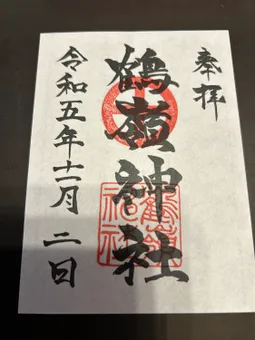 奉拝
鶴嶺神社
令和五年十二月二日